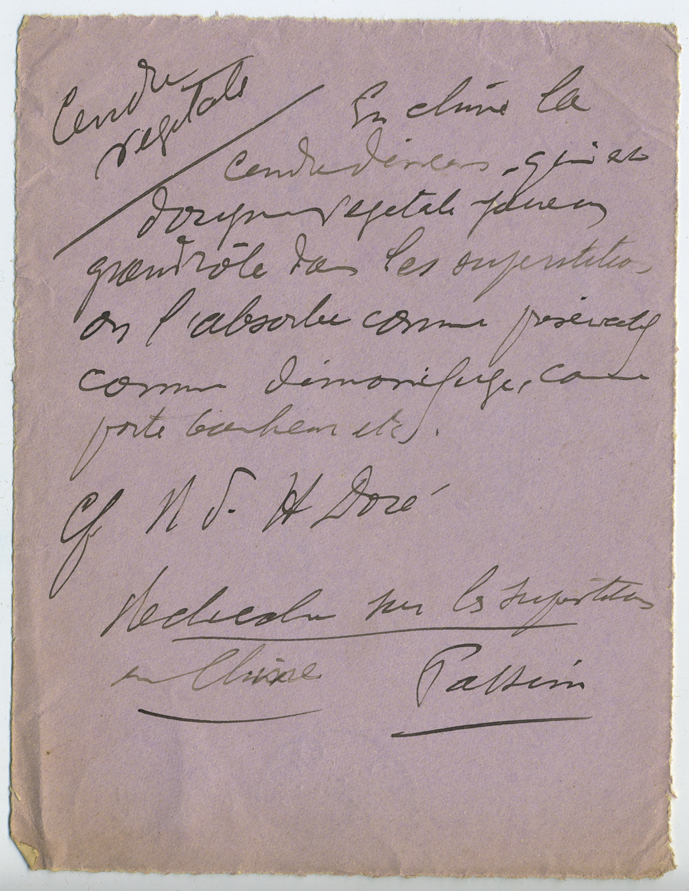 Cendre
végétale
En chine la
cendre d'encens, qui est
d'origine végétale joue un
grand rôle dans les superstitions
on l'absorbe comme préservatif
comme démonifuge, comme
porte bonheur etc.
Cf H Doré
Recherches sur les superstitions
en Chine Passim